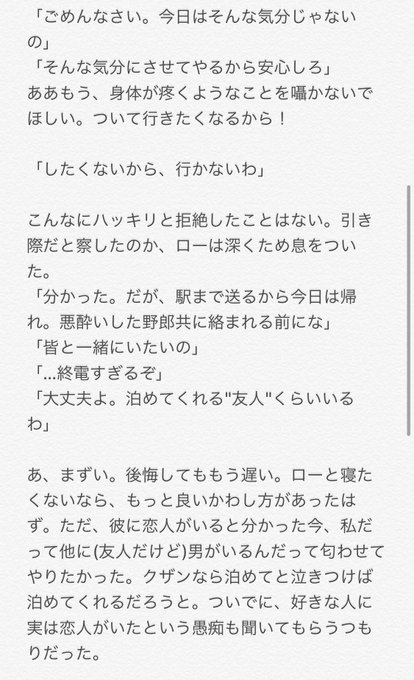 「ごめんなさい。今日はそんな気分じゃない
の」
「そんな気分にさせてやるから安心しろ」
ああもう、身体が疼くようなことを囁かないで
ほしい。ついて行きたくなるから！
「したくないから、行かないわ」
こんなにハッキリと拒絶したことはない。引き
際だと察したのか、ローは深くため息をつい
た。
「分かった。だが、駅まで送るから今日は帰
れ。悪酔いした野郎共に絡まれる前にな」
「皆と一緒にいたいの」
「...終電すぎるぞ」
「大丈夫よ。泊めてくれる"友人"くらいいる
わ」
あ、まずい。後悔してももう遅い。ローと寝た
くないなら、もっと良いかわし方があったは
ず。ただ、彼に恋人がいると分かった今、私だ
って他に(友人だけど)男がいるんだって匂わせて
やりたかった。クザンなら泊めてと泣きつけば
泊めてくれるだろうと。ついでに、好きな人に
実は恋人がいたという愚痴も聞いてもらうつも
りだった。